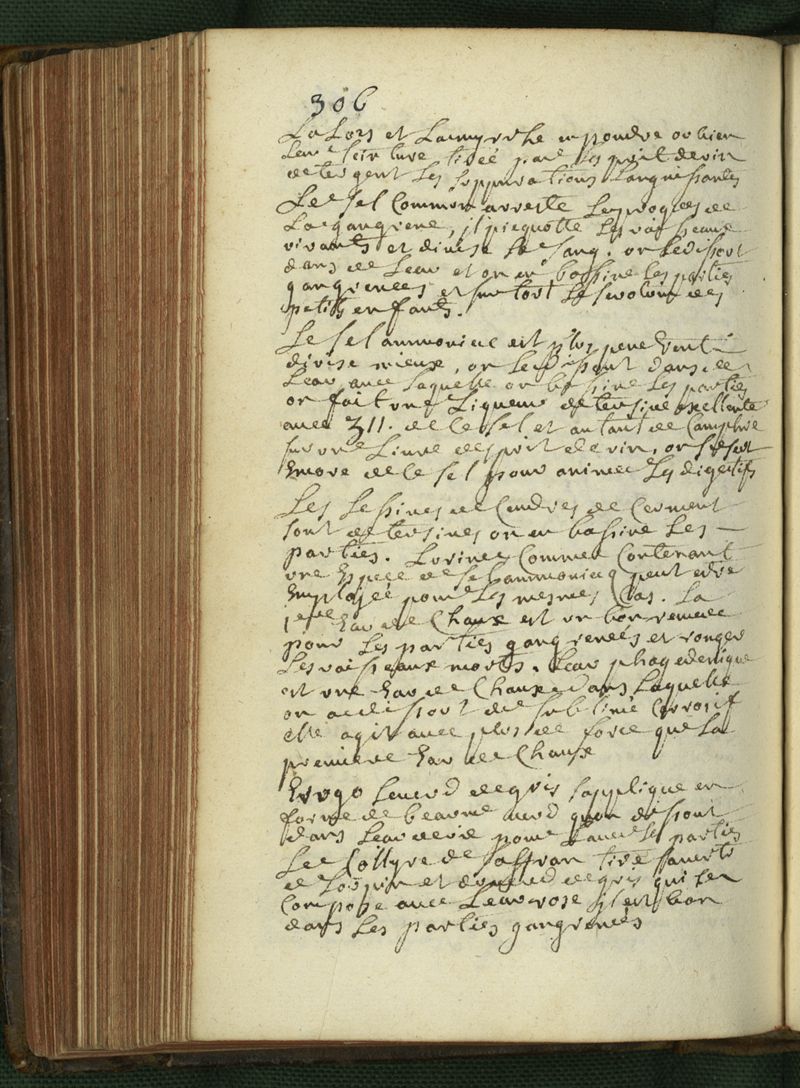 306
La Loes et La myrrhe en poudre ou bien
Leur teinture tirée par Lesprit de vin
detergent Les suppurations Languissantes
Le sel Commun arreste Le progres de
La gangrene, il picquotte Les vaisseaux
vivants et divise Le sang. on Le dissout
dans de Leau et on en bassine Les parties
gangrenées et sur tout Le des
petits enfants.
Le sel ammoniac est plus penetrant
divise mieux, on Le dissout dans de
Leau avec Laquelle on bassine Les parties
on fait une Liqueur detersive excellente
avec 3II. de ce sel et autant de Camphre
sur une Livre desprit de vin, on se sert
encore de ce sel pour animer Les digestifs
Les Lessives de Cendres de serment
sont detersives on en bassine Les
parties. Lurine Comme Contenant
une Espece de sel ammoniacq peut estre
Employée pour Les mesmes Cas. La
1ere Eau de Chaux est un bon remede
pour Les parties gangrenées et ronger
Les vaisseaux morts. Leau phagedenique
est une Eau de Chaux dans Laquelle
on a dissout du sublimé Corrosif
elle agit avec plus de force que La
premiere Eau de Chaux
Le verd de gris sapplique en
forme de beaume verd quon dissout
dans Leau de vie pour Laver Les parties
Le Collyre de Laffran tiré
de et du verd de gris qui se
Compose avec Leau rose il est bon
dans Les parties gangrenées